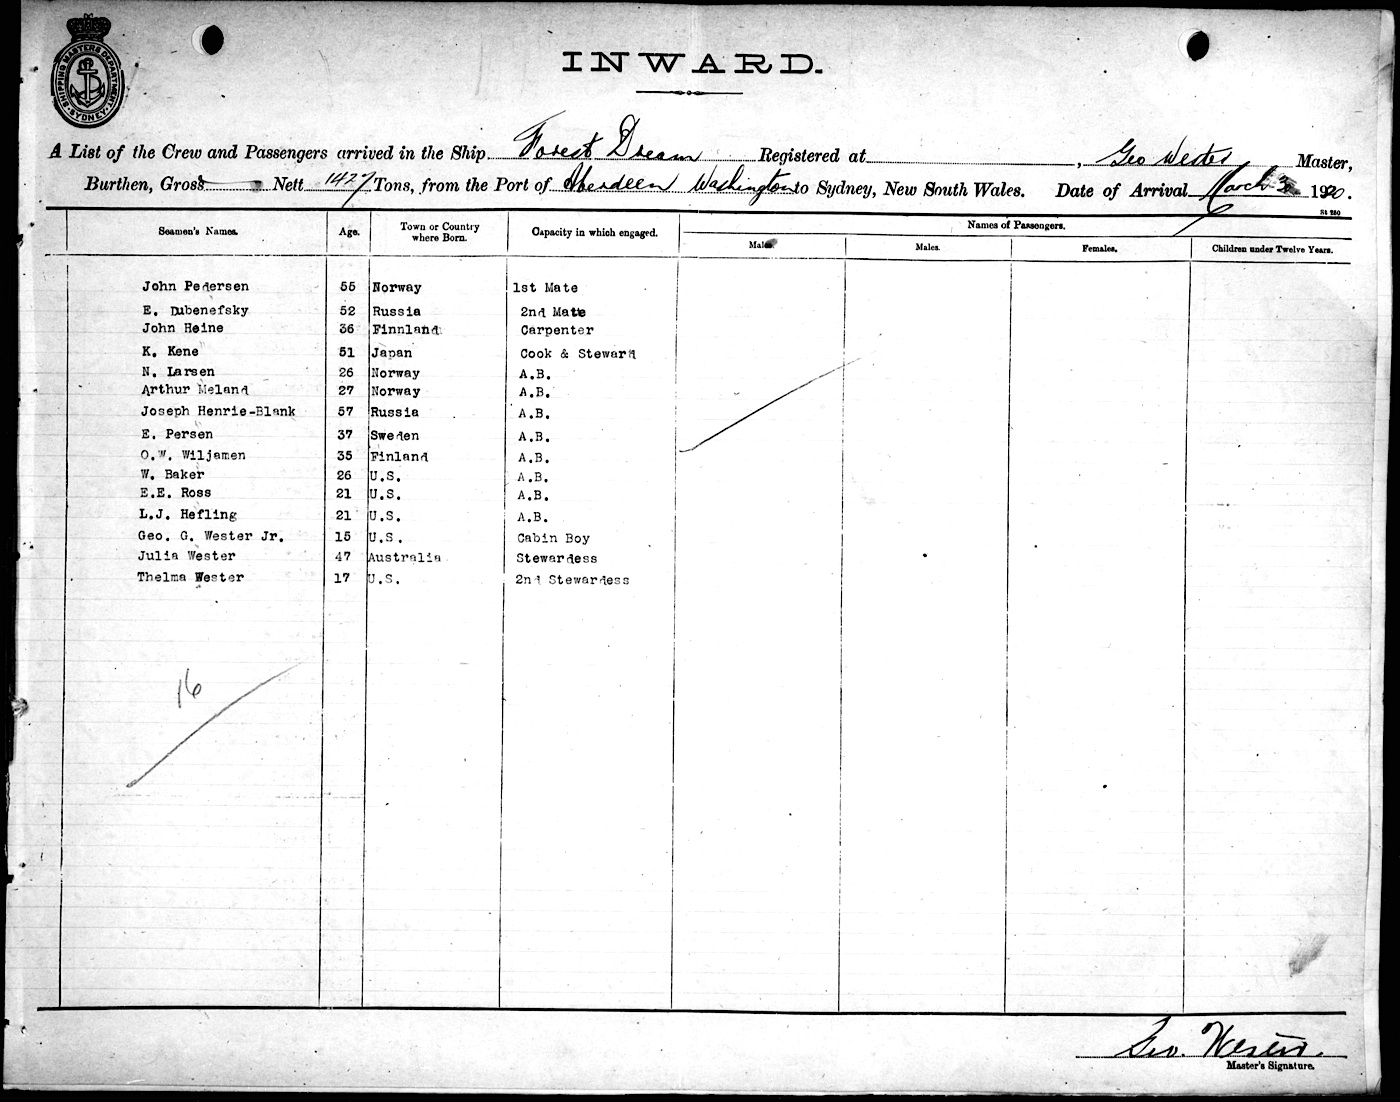 SHIPPING MASTERS DEPARTMENT
SYDNEY
INWARD.
A List of the Crew and Passengers arrived in the Ship Forest Dream Registered at , Geo Wester Master,
Burthen, Gross Nett 1427 Tons, from the Port of Aberdeen Washington to Sydney, New South Wales. Date of Arrival March 1920.
St 280
Seamen's Names. Age. Town or Country where Born. Capacity in which engaged. Names of Passengers.
Males. Males. Females. Children under Twelve Years.
John Pedersen 55 Norway 1st Mate
E. Dubenefsky 52 Russia 2nd Mate
John Heine 36 Finnland Carpenter
K. Kene 51 Japan Cook & Steward
N. Larsen 26 Norway A.B.
Arthur Meland 27 Norway A.B.
Joseph Henrie-Blank 57 Russia A.B.
E. Persen 37 Sweden A.B.
O.W. Wiljamen 35 Finland A.B.
W. Baker 26 U.S. A.B.
E.E. Ross 21 U.S. A.B.
L.J. Hefling 21 U.S. A.B.
Geo. G. Wester Jr. 15 U.S. Cabin Boy
Julia Wester 47 Australia Stewardess
Thelma Wester 17 U.S. 2nd Stewardess
16
Geo. Wester.
Master's Signature.